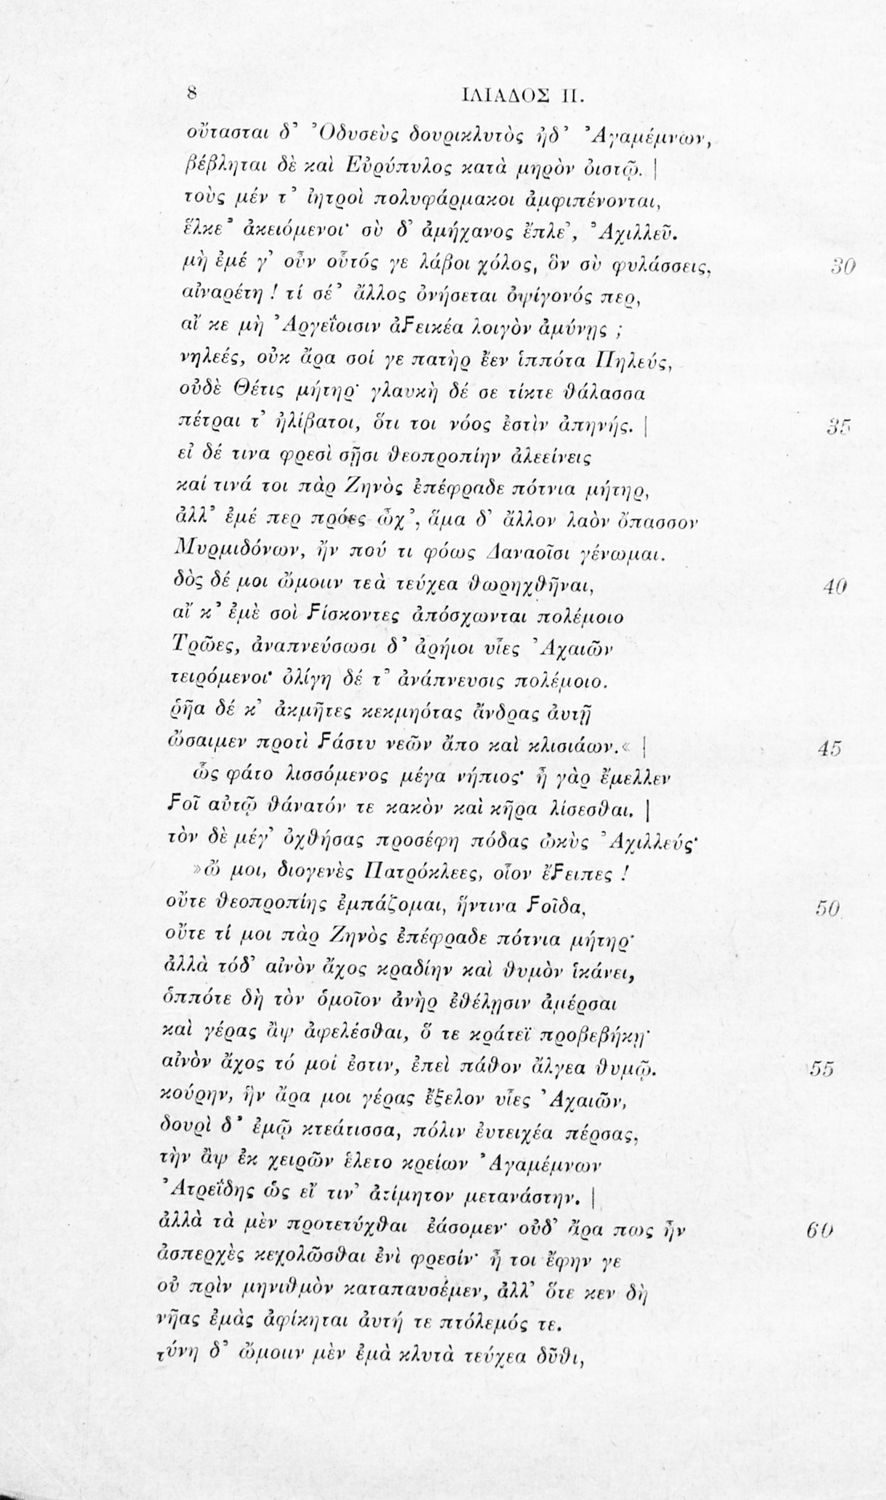 8 ΙΛΙΑΔΟΣ Π.
οὔτασται δ᾽ Ὀδυσεὺς δουρικλυτὸς ἠδ᾽ Ἀγαμέμνων,
βέβληται δὲ καὶ Εὐρύπυλος κατὰ μηρὸν ὀιστῷ. |
τοὺς μέν τ᾽ ἰητροὶ πολυφάρμακοι ἀμφιπένονται,
ἕλκε᾽ ἀκειόμενοι· σὺ δ᾽ ἀμήχανος ἔπλε᾽, Ἀχιλλεῦ.
μὴ ἐμέ γ᾽ οὖν οὗτός γε λάβοι χόλος, ὃν σὺ φυλάσσεις, 30
αἰναρέτη! τί σέ᾽ ἄλλος ὀνήσεται ὀψίγονός περ,
αἴ κε μὴ Ἀργεΐοισιν ἀϝεικέα λοιγὸν ἀμύνῃς;
νηλεές, οὐκ ἄρα σοί γε πατὴρ ἔεν ἱππότα Πηλεύς,
οὐδὲ Θέτις μήτηρ· γλαυκὴ δέ σε τίκτε θάλασσα
πέτραι τ᾽ ἠλίβατοι, ὅτι τοι νόος ἐστὶν ἀπηνής. | 35
εἰ δέ τινα φρεσὶ σῇσι θεοπροπίην ἀλεείνεις
καί τινά τοι πὰρ Ζηνὸς ἐπέφραδε πότνια μήτηρ,
ἀλλ᾽ ἐμέ περ πρόες ὦχ᾽, ἅμα δ᾽ ἄλλον λαὸν ὄπασσον
Μυρμιδόνων, ἤν πού τι φόως Δαναοῖσι γένωμαι.
δὸς δέ μοι ὤμοιιν τεὰ τεύχεα θωρηχθῆναι, 40
αἴ κ᾽ ἐμὲ σοὶ ϝίσκοντες ἀπόσχωνται πολέμοιο
Τρῶες, ἀναπνεύσωσι δ᾽ ἀρήιοι υἷες Ἀχαιῶν
τειρόμενοι· ὀλίγη δέ τ᾽ ἀνάπνευσις πολέμοιο.
ῥῆα δέ κ᾽ ἀκμῆτες κεκμηότας ἄνδρας ἀυτῇ
ὤσαιμεν προτὶ ϝάστυ νεῶν ἄπο καὶ κλισιάων.« | 45
ὣς φάτο λισσόμενος μέγα νήπιος· ἦ γὰρ ἔμελλεν
ϝοῖ αὐτῷ θάνατόν τε κακὸν καὶ κῆρα λίσεσθαι. |
τὸν δὲ μέγ᾽ ὀχθήσας προσέφη πόδας ὠκὺς Ἀχιλλεύς·
»ὤ μοι, διογενὲς Πατρόκλεες, οἷον ἔϝειπες!
οὔτε θεοπροπίης ἐμπάζομαι, ἥντινα ϝοῖδα, 50
οὔτε τί μοι πὰρ Ζηνὸς ἐπέφραδε πότνια μήτηρ·
ἀλλὰ τόδ᾽ αἰνὸν ἄχος κραδίην καὶ θυμὸν ἱκάνει,
ὁππότε δὴ τὸν ὁμοῖον ἀνὴρ ἐθέλησιν ἀμέρσαι
καὶ γέρας ἂψ ἀφελέσθαι, ὅ τε κράτεϊ προβεβήκῃ·
αἰνὸν ἄχος τό μοί ἐστιν, ἐπεὶ πάθον ἄλγεα θυμῷ. 55
κούρην, ἣν ἄρα μοι γέρας ἔξελον υἷες Ἀχαιῶν,
δουρὶ δ᾽ ἐμῷ κτεάτισσα, πόλιν ἐυτειχέα πέρσας,
τὴν ἂψ ἐκ χειρῶν ἕλετο κρείων Ἀγαμέμνων
Ἀτρεΐδης ὡς εἴ τιν᾽ ἀτίμητον μετανάστην. |
ἀλλὰ τὰ μὲν προτετύχθαι ἐάσομεν· οὐδ᾽ ἄρα πως ἦν 60
ἀσπερχὲς κεχολῶσθαι ἐνὶ φρεσίν· ἦ τοι ἔφην γε
οὐ πρὶν μηνιθμὸν καταπαυσέμεν, ἀλλ᾽ ὅτε κεν δὴ
νῆας ἐμὰς ἀφίκηται ἀυτή τε πτόλεμός τε.
τύνη δ᾽ ὤμοιιν μὲν ἐμὰ κλυτὰ τεύχεα δῦθι,